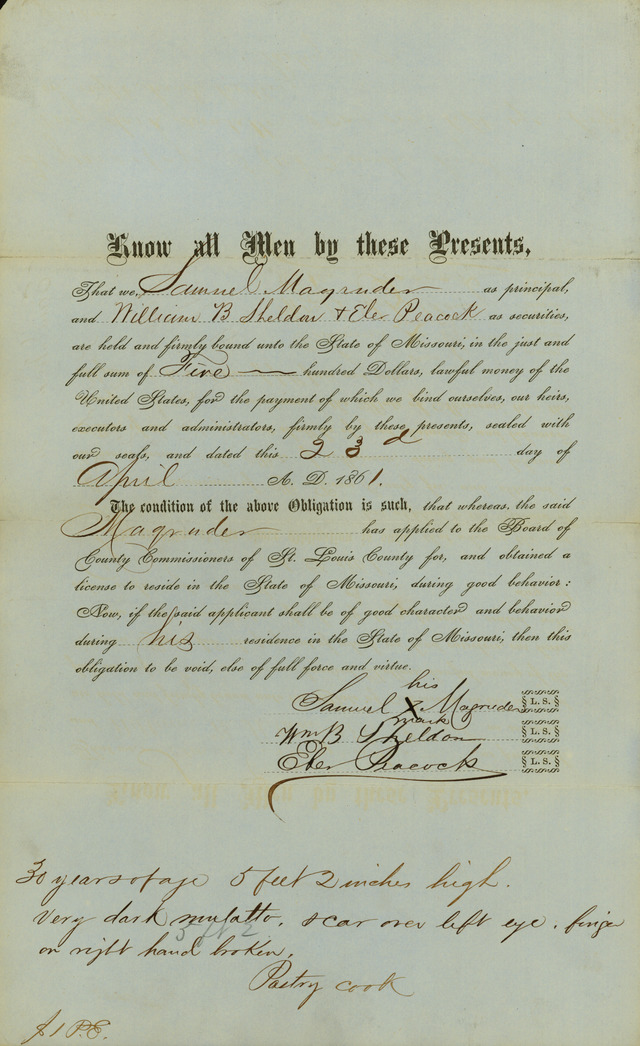 Know all Men by these Presents,
That we, Samuel Magruder as principal,
and William B Sheldon & Eber Peacock as securities,
are held and firmly bound unto the State of Missouri, in the just and
full sum of Five hundred Dollars, lawful money of the
United States, for the payment of which we bind ourselves, our heirs,
executors and administrators, firmly by these presents, sealed with
our seals, and dated this 23d day of
April A. D. 1861.
The condition of the above Obligation is such, that whereas, the said
Magruder has applied to the Board of
County Commissioners of St. Louis County for, and obtained a
license to reside in the State of Missouri, during good behavior:
Now, if the said applicant shall be of good character and behavior
during his residence in the State of Missouri, then this
obligation to be void, else of full force and virtue.
his
Samuel X Magruder L. S.
mark
Wm B Sheldon L. S.
Eber Peacock L. S.
30 years of age 5 feet 2 inches high.
Very dark mulatto. scar over left eye. finger
5 ft 2
on right hand broken.
Pastry cook